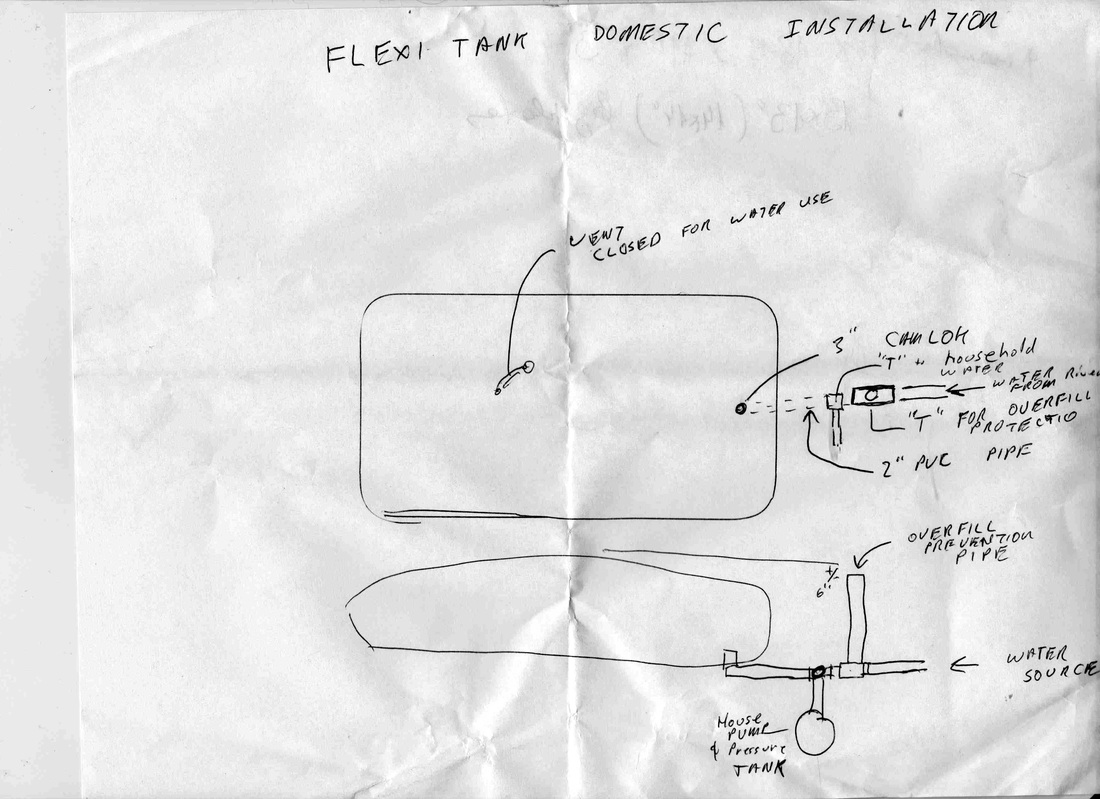 FLEXI TANK DOMESTIC INSTALLATION
VENT
CLOSED FOR WATER USE
3" CAMLOK
"T" household
WATER
WATER
FROM River
"T" FOR OVERFILL
PROTECTIO
2" PVC PIPE
OVERFILL
PREVENTION
PIPE
+/-
6"
WATER
SOURCE
House
PUMP
& Pressure
TANK